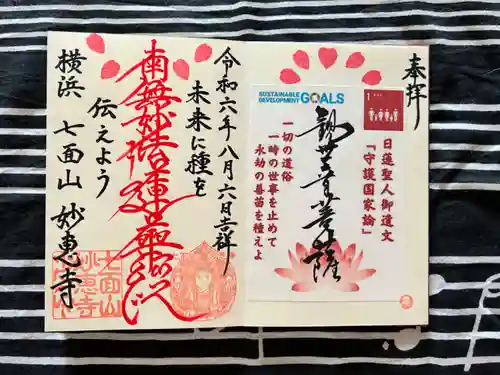 奉拝
SUSTAINABLE
DEVELOPMENT
GOALS
1
日蓮聖人御遺文
「守護国家論」
観世音菩薩
一切の道俗
一時の世事を止めて
永劫の善苗を種えよ
令和六年八月六日吉祥
未来に種を
南無妙法蓮華経
伝えよう
横浜 七面山 妙恵寺
七面山
妙恵寺